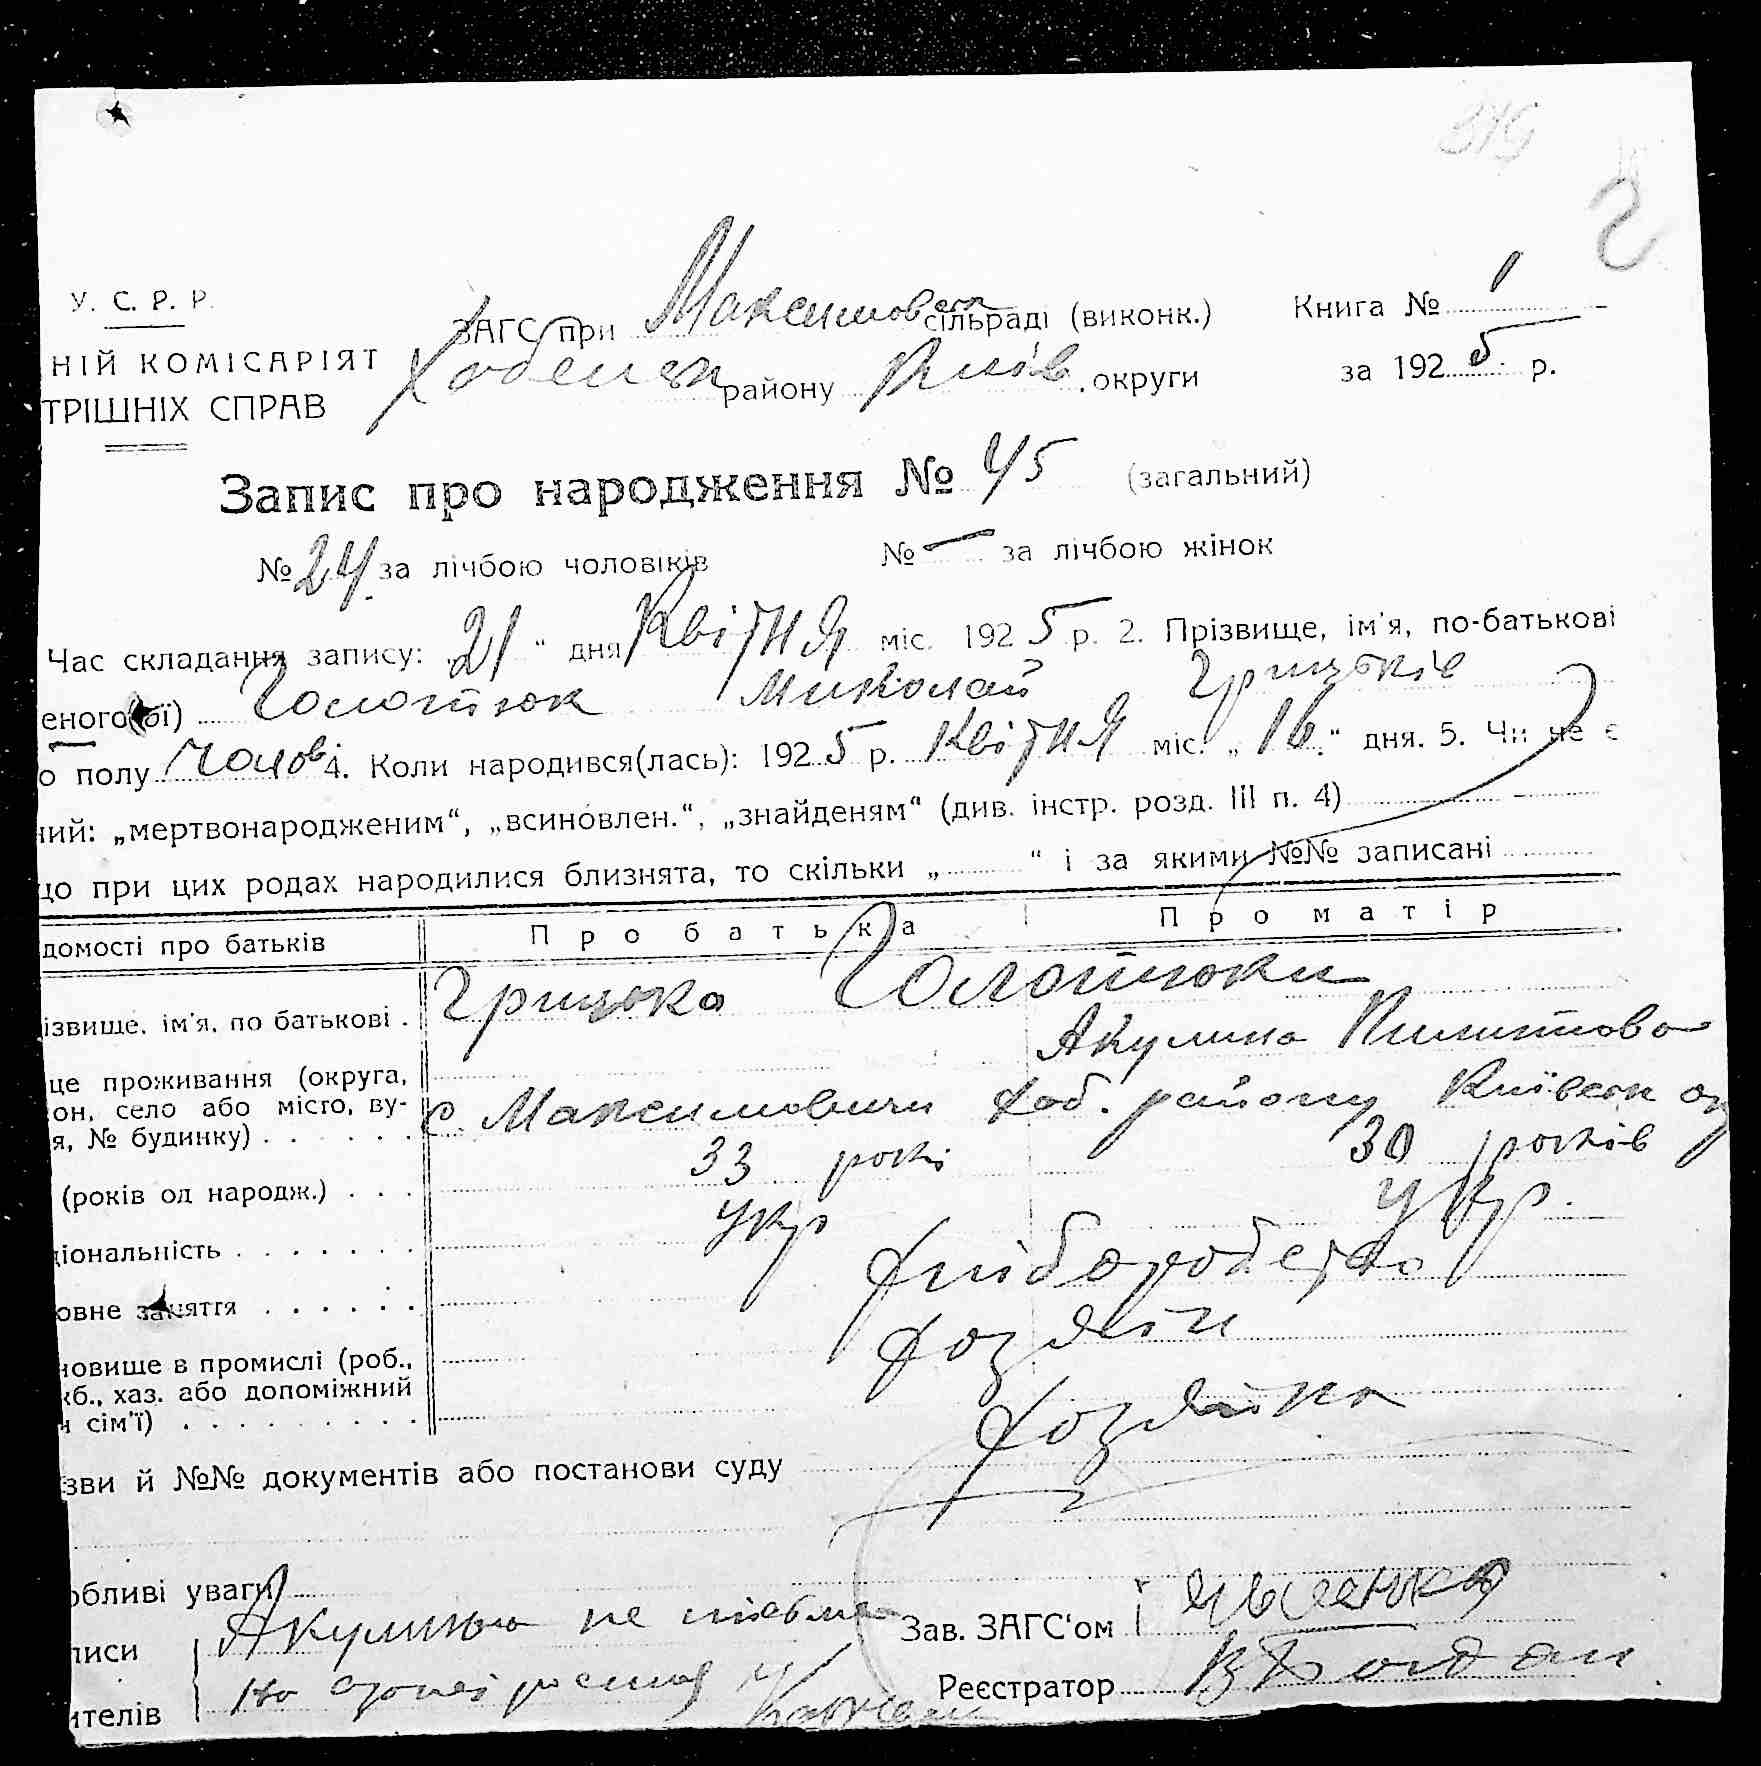 379
2
У. С. Р. Р.
ЗАГС при Максимовськ сільраді (виконк.) Книга № 1
НІЙ КОМІСАРІЯТ
Хабенськ району Київ. округи за 1925 р.
ТРІШНІХ СПРАВ
Запис про народження № 45 (загальний)
№ 24 за лічбою чоловіків № — за лічбою жінок
Час складання запису: 21 " дня Квітня міс. 1925 р. 2. Прізвище, ім'я, по-батькові
еного(ої) Голотюк Миколай Грицьків
о полу Чолов 4. Коли народився(лась): 1925 р. Квітня міс. „ 16 " дня. 5. Чи не є
ний: „мертвонародженим", „всиновлен.", „знайденям" (див. інстр. розд. III п. 4)
що при цих родах народилися близнята, то скільки „ " і за якими №№ записані
домості про батьків Про батька Про матір
ізвище, ім'я, по батькові . Грицько Голотюки
Акулина Пилипова
це проживання (округа,
он, село або місто, ву- с. Максимовичи Хаб. району Київськ ок
я, № будинку) . . . . . .
(років од народж.) . . . 33 роки 30 років
ціональність . . . . . . . укр укр.
овне заняття . . . . . . хліборобство
новище в промислі (роб., хозяїн
жб., хаз. або допоміжний
н сім'ї) . . . . . . . . . хозяйка
зви й №№ документів або постанови суду
обливі уваги
писи Акулина не Зав. ЗАГС'ом
ителів Реєстратор